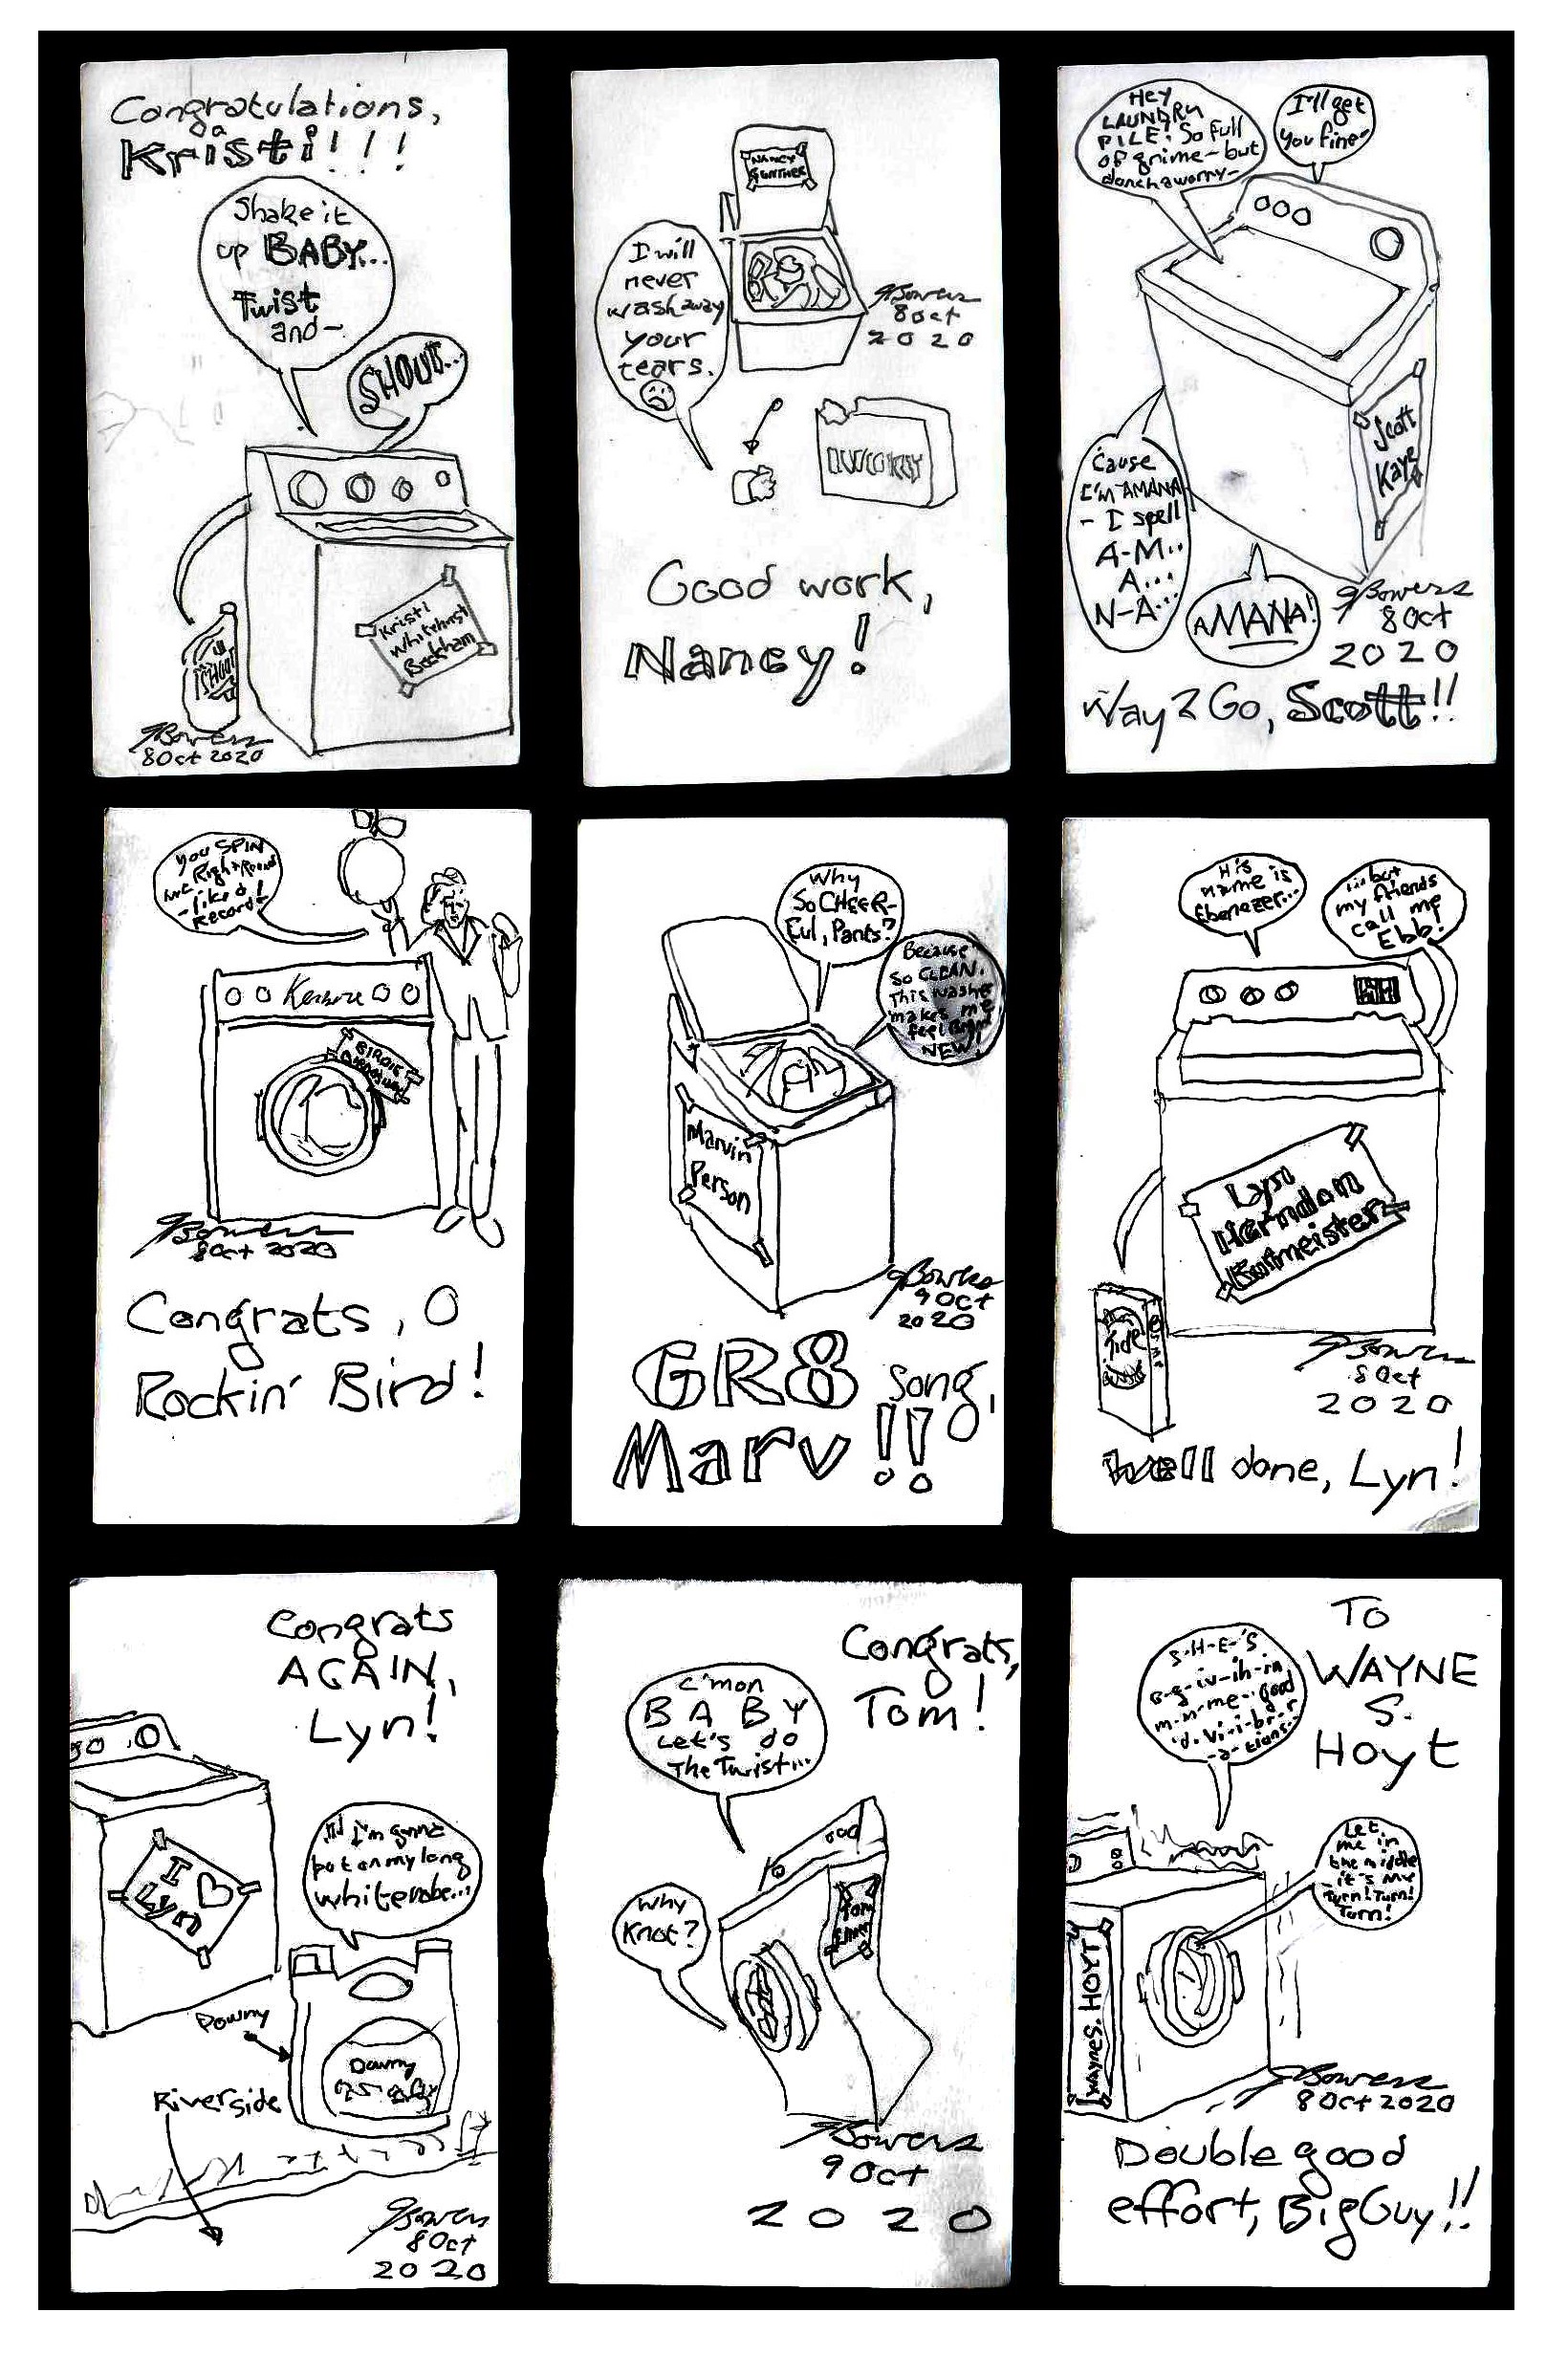 Congratulations,
Kristi!!!
Shake it
up BABY...
Twist
and-
SHOUT...
Kristi
Whitehurst
Beckham
SHOUT
JBowers
8 Oct 2020
NANCY
GUNTHER
I will
never
wash away
your
tears.
JBowers
8 Oct
2020
Good work,
Nancy!
Hey
LAUNDRY
PILE! So full
of grime-but
donchaworry-
I'll get
you fine-
'Cause
I'M AMANA
- I spell
A-M..
A...
N-A...
AMANA!
Scott
Kaye
JBowers
8 Oct
2020
Way 2 Go, Scott!!
You SPIN
me Right Round
-like a
Record!-
Kenmore
BIRDIE
JBowers
8 Oct 2020
Congrats, O
Rockin' Bird!
Why
So CHEER-
Ful, Pants?
Because
So CLEAN.
This washer
makes me
feel Brand
NEW!
Marvin
Person
JBowers
9 Oct
2020
GR8 song,
Marv!!
His
name is
Ebenezer...
...but
my friends
call me
Ebb!
Lyn
Herndon
Burmeister
Tide
JBowers
8 Oct
2020
Well done, Lyn!
Congrats
AGAIN,
Lyn!
I ♡
Lyn
I'm gonna
put on my long
white robe...
Downy
Downy
Riverside
JBowers
8 Oct
2020
Congrats,
Tom!
C'mon
BABY
Let's do
The Twist...
Why
Knot?
Tom
JBowers
9 Oct
2020
TO
WAYNE
S.
HOYT
S-H-E-'S
g-g-iv-ih-in
m-m-me-good
'd-Vi-i-br-r
-a-tions...
Let
me in
the middle
-it's my
Turn! Turn!
Turn!
WAYNE S. HOYT
JBowers
8 Oct 2020
Double good
effort, Big Guy!!